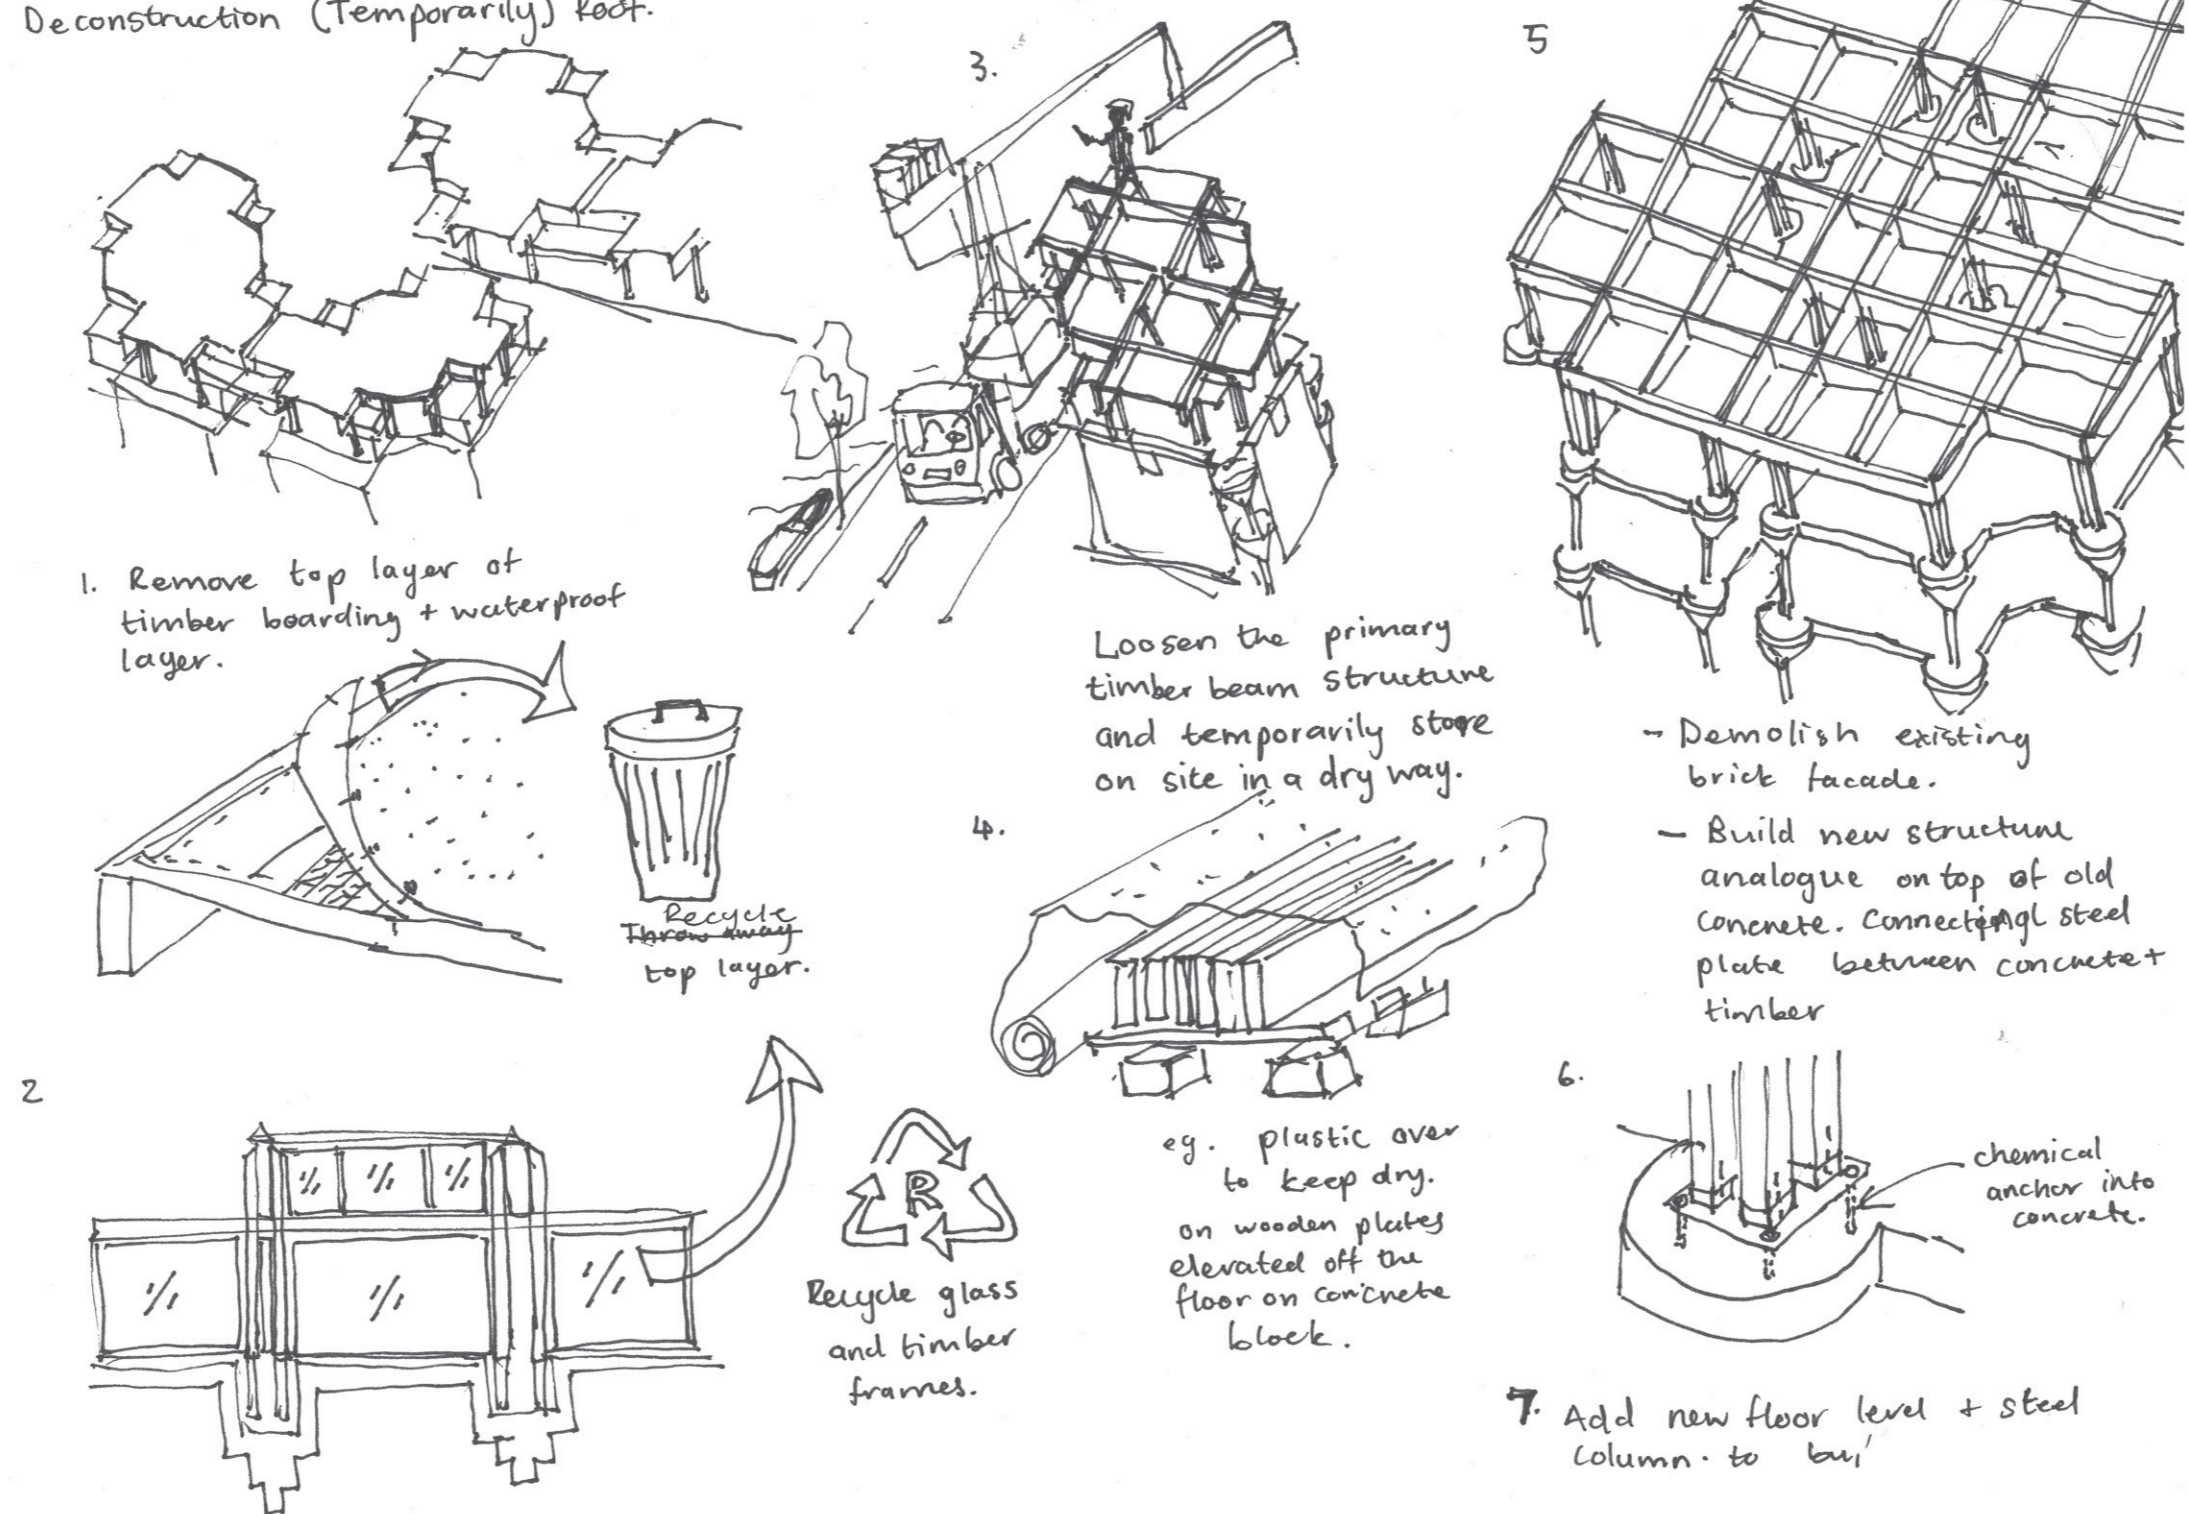 Deconstruction (Temporarily) Roof.
1. Remove top layer of
timber boarding + waterproof
layer.
Recycle
Throw away
top layer.
2
R
Recycle glass
and timber
frames.
3.
Loosen the primary
timber beam structure
and temporarily store
on site in a dry way.
4.
eg. plastic over
to keep dry.
on wooden plates
elevated off the
floor on concrete
block.
5
- Demolish existing
brick facade.
- Build new structure
analogue on top of old
concrete. steel
plate between concrete +
timber
6.
chemical
anchor into
concrete.
7. Add new floor level + steel
column. to bui